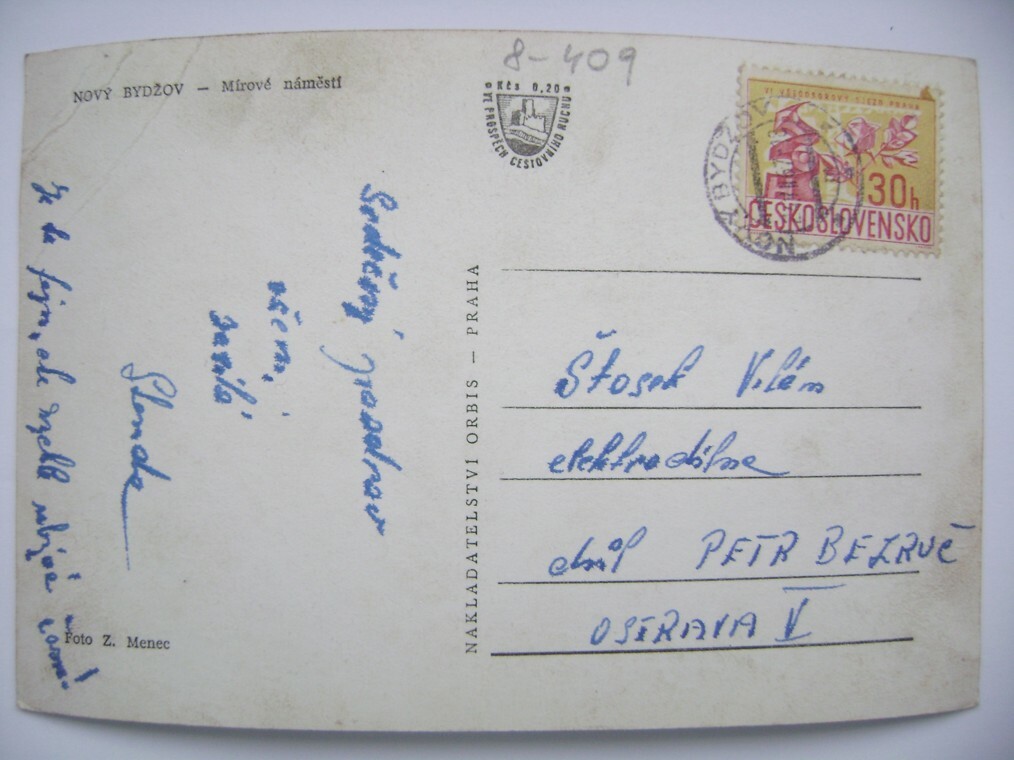 8-409
NOVÝ BYDŽOV — Mírové náměstí
Kčs 0,20
VE PROSPĚCH CESTOVNÍHO RUCHU
VI VŠEODBOROVÝ SJEZD PRAHA
30h
ČESKOSLOVENSKO
NOVÝ BYDŽOV
Srdečný pozdrav
všem,
zasílá
Standa
Je to fajn, ale
NAKLADATELSTVÍ ORBIS — PRAHA
Štosek Vilém
elektrodílna
důl PETR BEZRUČ
OSTRAVA V
Foto Z. Menec